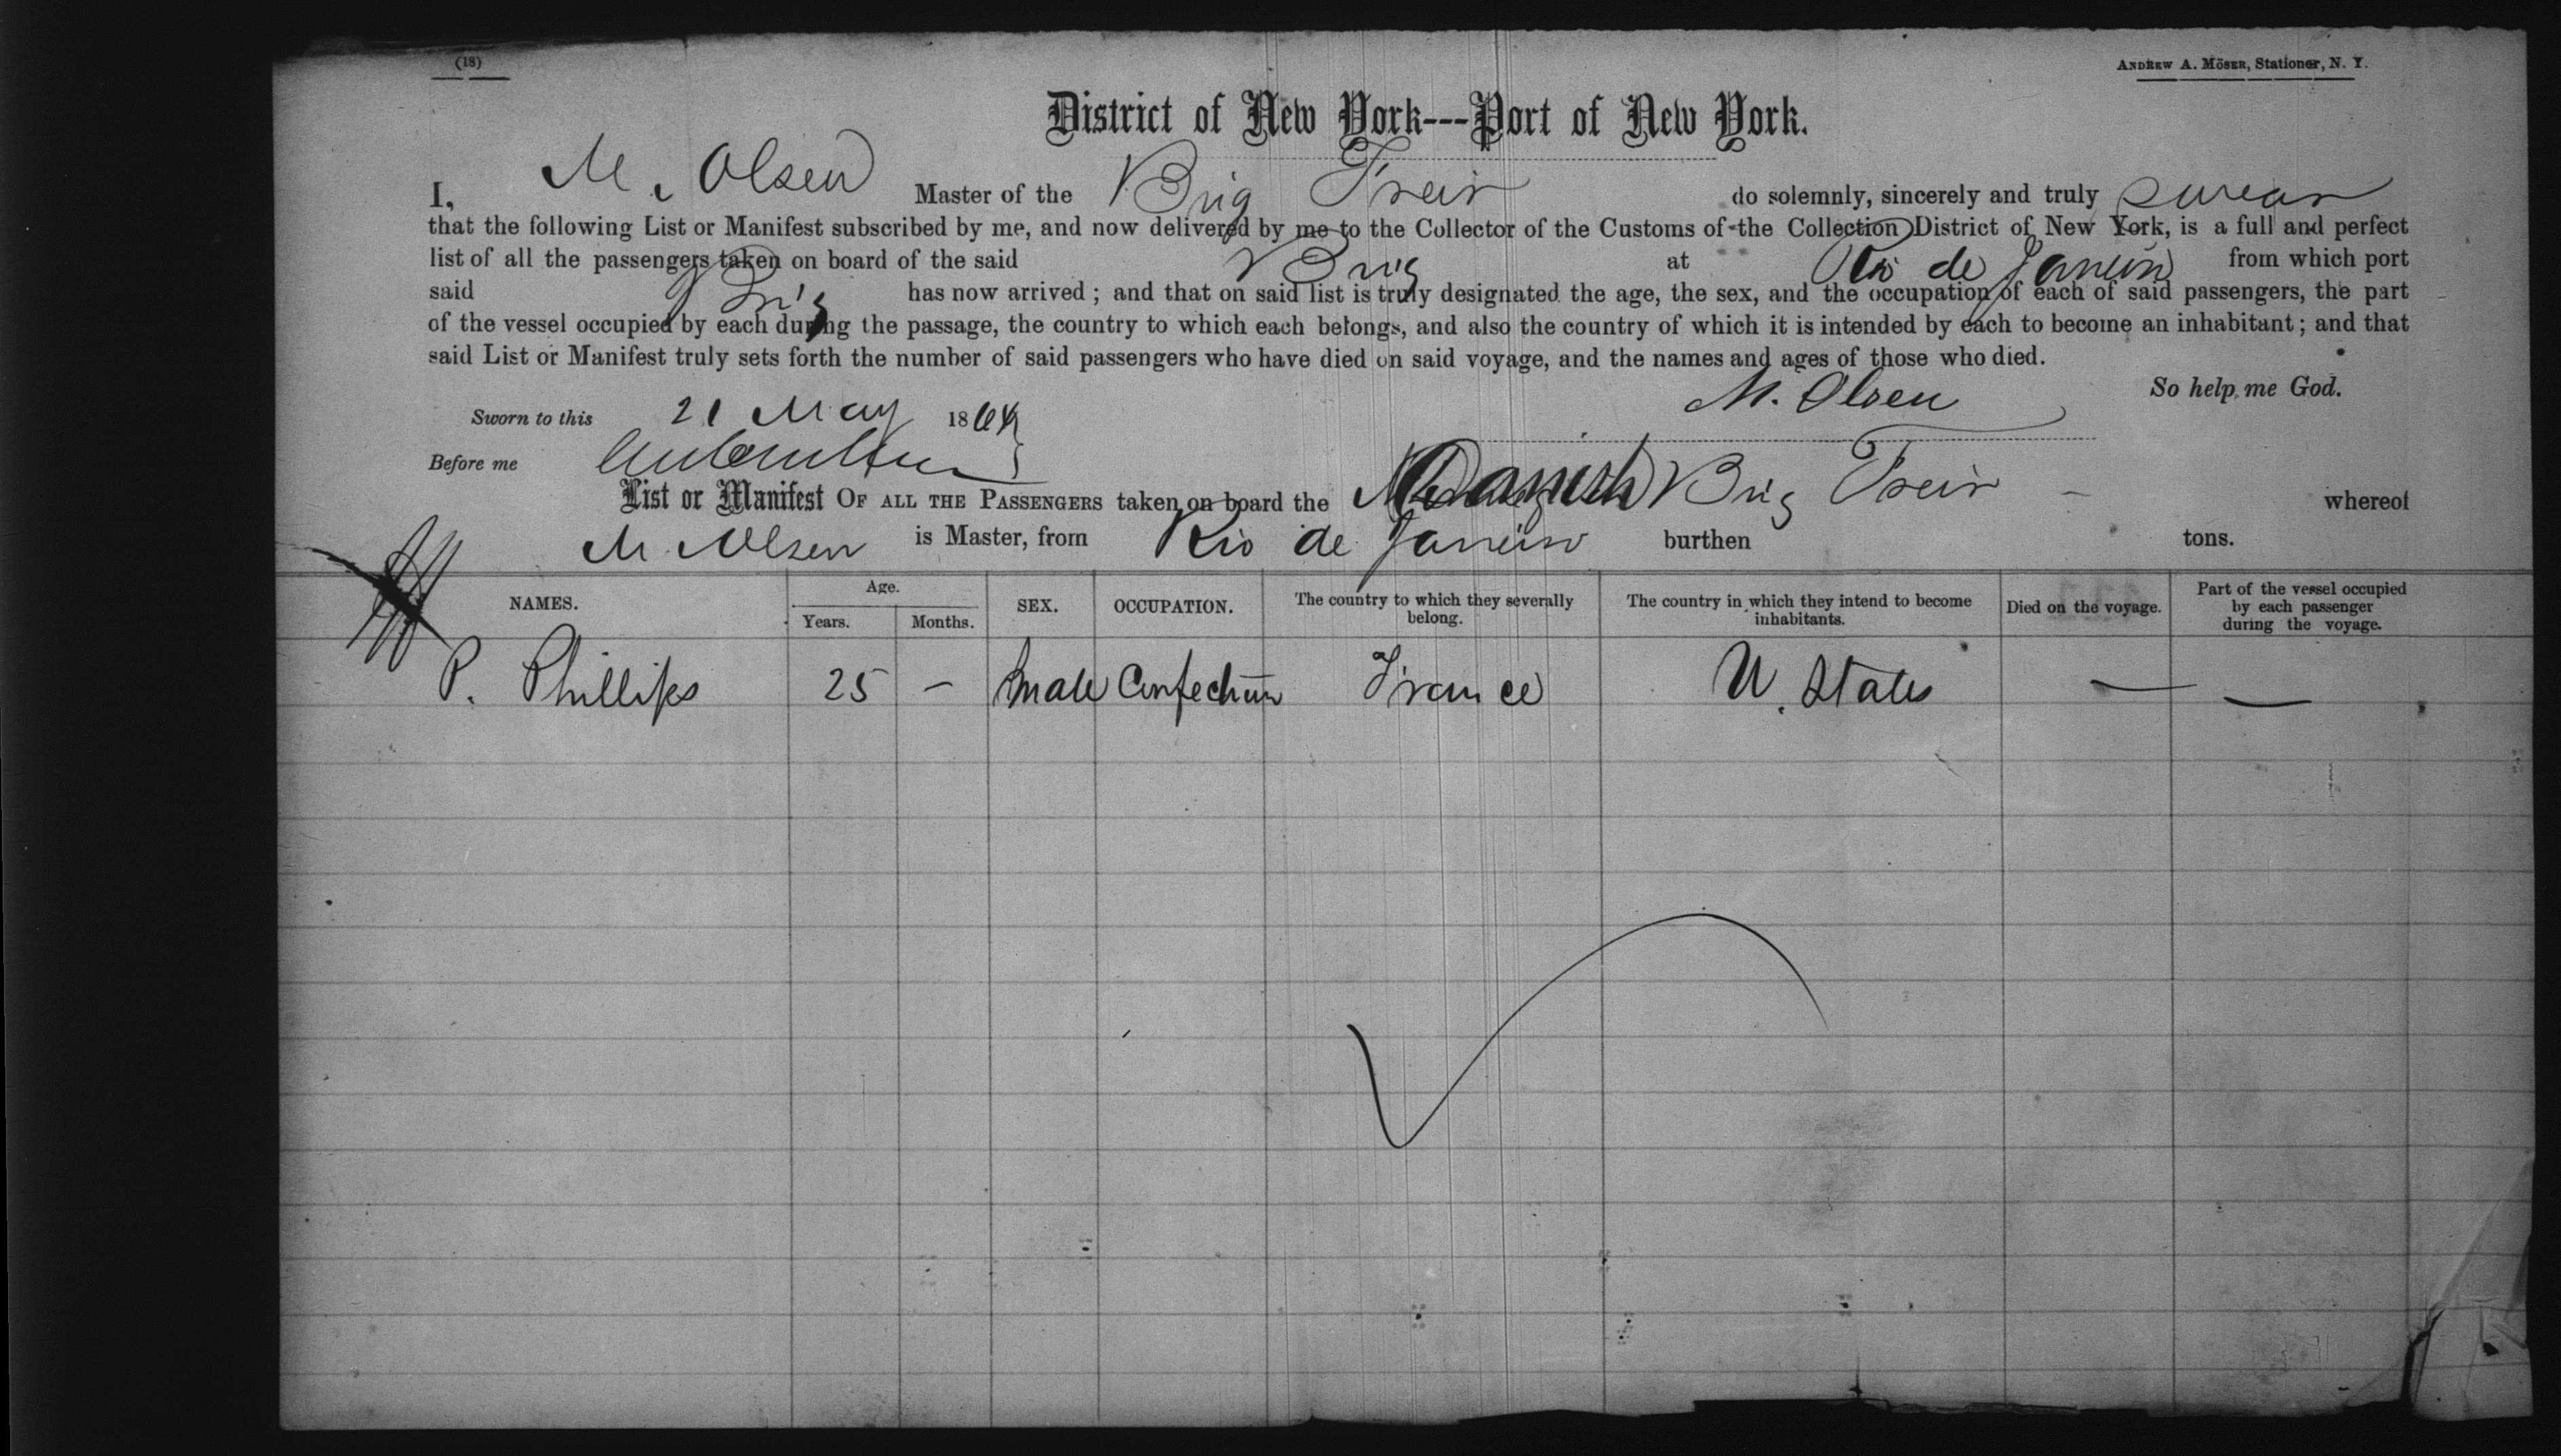 (18)
ANDREW A. MÖSER, Stationer, N. Y.
District of New York---Port of New York.
I, M. Olsen Master of the Brig Freir do solemnly, sincerely and truly swear
that the following List or Manifest subscribed by me, and now delivered by me to the Collector of the Customs of the Collection District of New York, is a full and perfect
list of all the passengers taken on board of the said Brig at Rio de Janeiro from which port
said Brig has now arrived ; and that on said list is truly designated the age, the sex, and the occupation of each of said passengers, the part
of the vessel occupied by each during the passage, the country to which each belongs, and also the country of which it is intended by each to become an inhabitant ; and that
said List or Manifest truly sets forth the number of said passengers who have died on said voyage, and the names and ages of those who died.
So help me God.
M. Olsen
Sworn to this 21 May 1864
Before me
List or Manifest OF ALL THE PASSENGERS taken on board the Danish Brig Freir - whereof
M. Olsen is Master, from Rio de Janeiro burthen tons.
NAMES. Age. Years. Months. SEX. OCCUPATION. The country to which they severally belong. The country in which they intend to become inhabitants. Died on the voyage. Part of the vessel occupied by each passenger during the voyage.
P. Phillips 25 – male France U. States — —